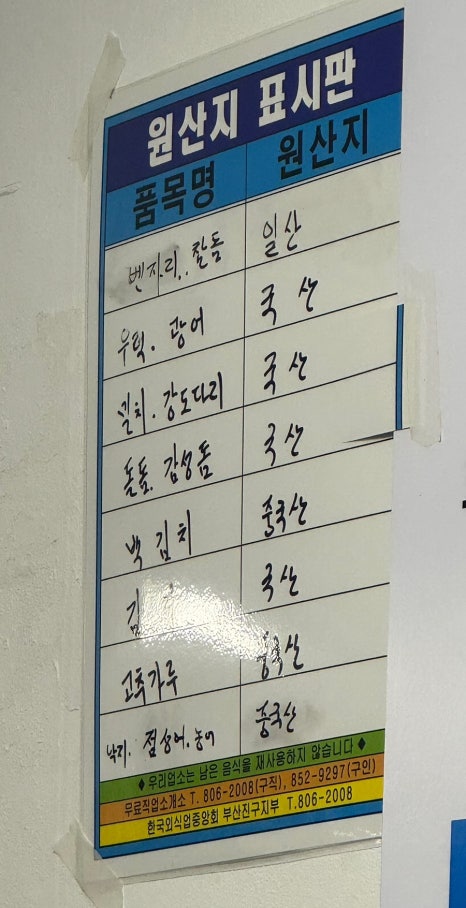 원산지 표시판
품목명 원산지
벤자리.. 참돔 일산
우럭. 광어 국산
밀치. 강도다리 국산
돌돔. 감성돔 국산
백김치 중국산
김 국산
고추가루 중국산
낙지. 점성어. 농어 중국산
◆우리업소는 남은 음식을 재사용하지 않습니다◆
무료직업소개소 T. 806-2008(구직), 852-9297(구인)
한국외식업중앙회 부산진구지부 T.806-2008